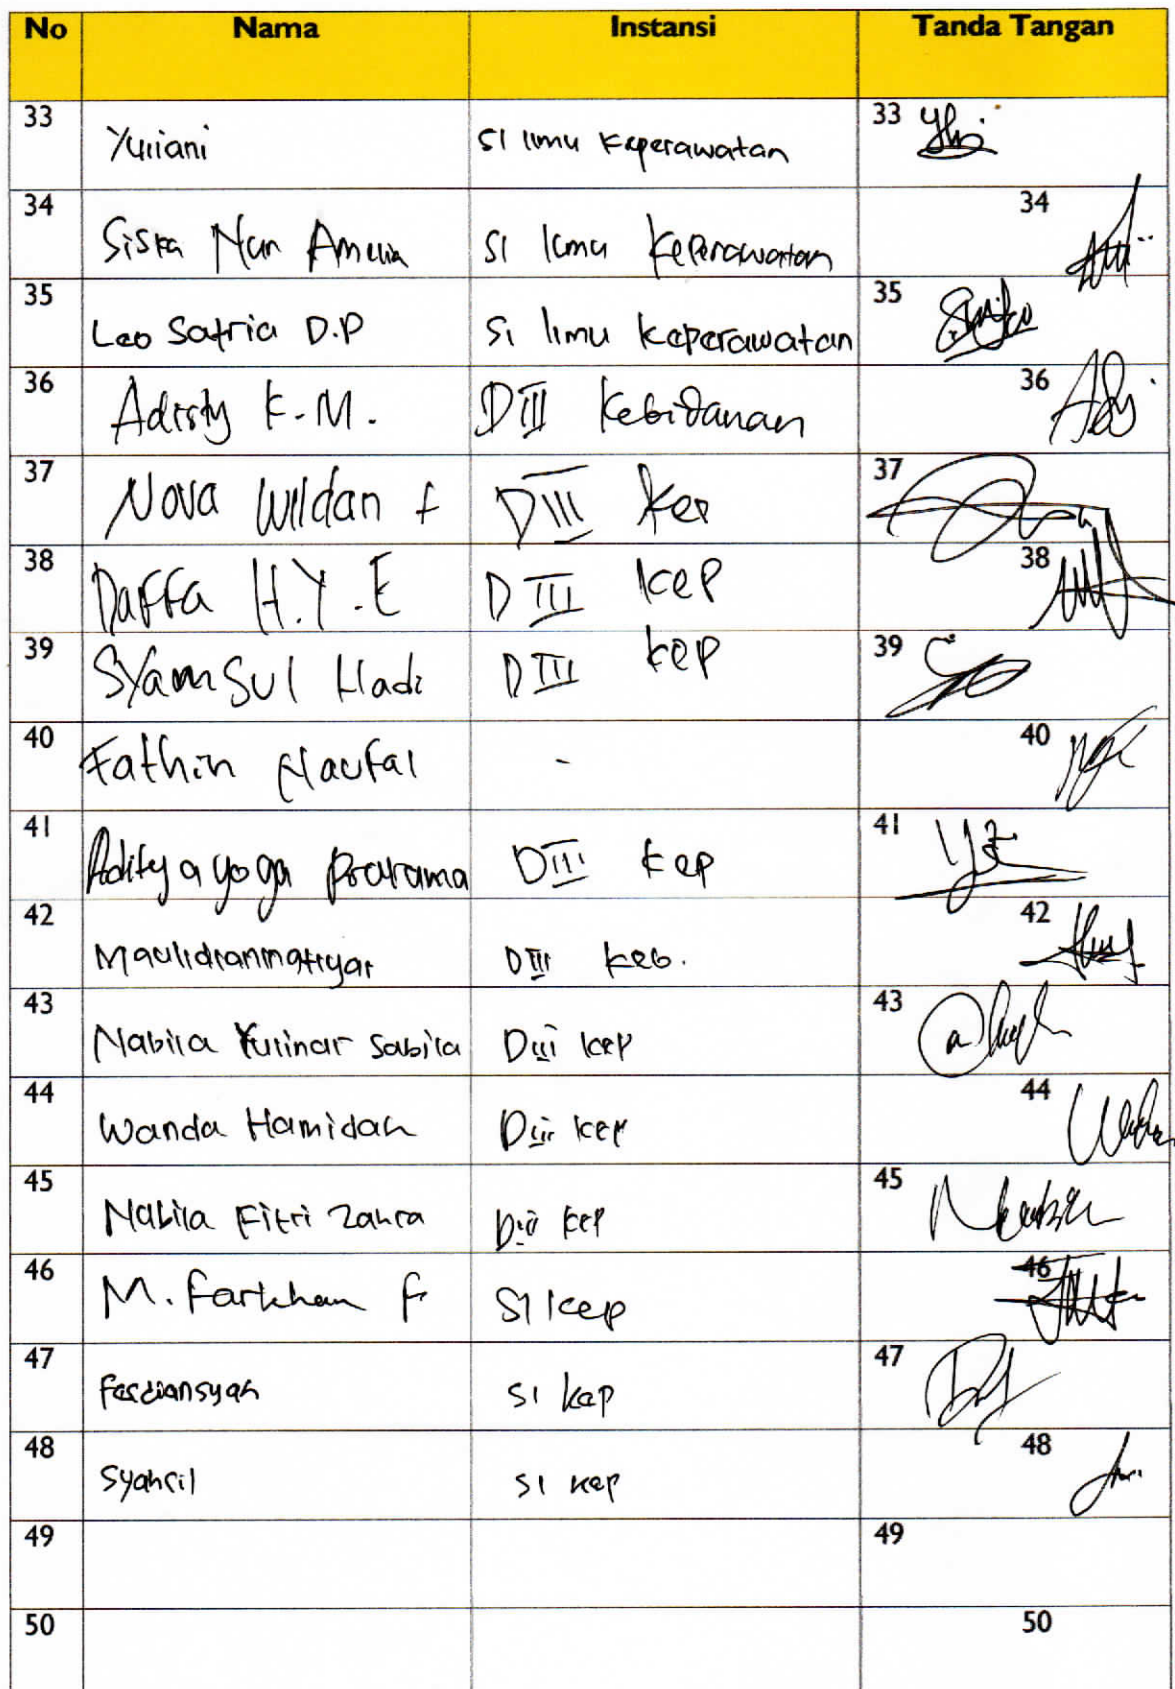 No Nama Instansi Tanda Tangan
33 Yuliani S1 Ilmu Keperawatan 33
34 Siska Nur Amelia S1 Ilmu Keperawatan 34
35 Leo Satria D.P S1 Ilmu Keperawatan 35
36 Adisty K.M. DIII Kebidanan 36
37 Nova Wildan F DIII Kep 37
38 Daffa H.Y.E DIII Kep 38
39 Syamsul Hadi DIII Kep 39
40 Fathin Naufal - 40
41 Aditya yoga Pratama DIII Kep 41
42 DIII Keb. 42
43 Nabila Yulinar Sabila DIII Kep 43
44 Wanda Hamidah DIII Kep 44
45 Nabila Fitri Zahra DIII Kep 45
46 M. Farkhan F S1 Kep 46
47 Ferdiansyah S1 Kep 47
48 Syahril S1 Kep 48
49 49
50 50